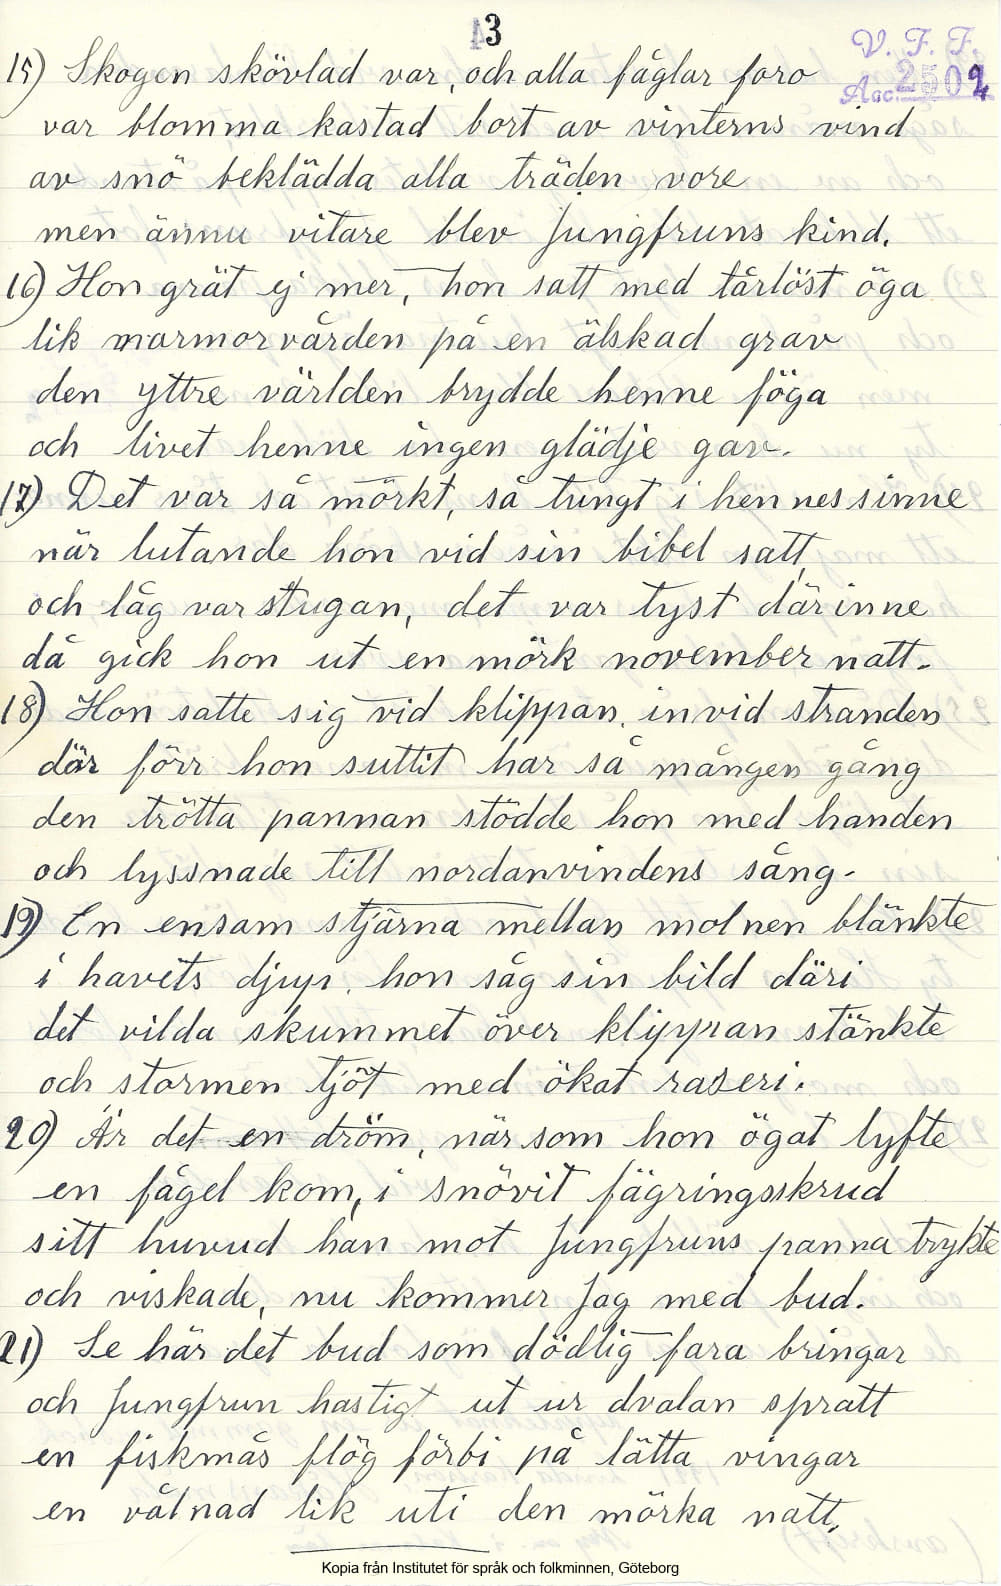 3
V. F. F.
Acc. 2502
15) Skogen skövlad var, och alla fåglar foro
var blomma kastad bort av vinterns vind
av snö beklädda alla träden vore
men ännu vitare blev Jungfruns kind.
16) Hon grät ej mer, hon satt med tårlöst öga
lik marmorvården på en älskad grav
den yttre världen brydde henne föga
och livet henne ingen glädje gav.
17) Det var så mörkt, så tungt i hennes sinne
när lutande hon vid sin bibel satt
och låg var stugan, det var tyst därinne
då gick hon ut en mörk november natt.
18) Hon satte sig vid klippan, invid stranden
där förr hon suttit har så mången gång
den trötta pannan stödde hon med handen
och lyssnade till nordanvindens sång.
19) En ensam stjärna mellan molnen blänkte
i havets djup, hon såg sin bild däri
det vilda skummet över klippan stänkte
och stormen tjöt med ökat raseri.
20) Är det en dröm, när som hon ögat lyfte
en fågel kom, i snövit fägringsskrud
sitt huvud han mot Jungfruns panna trykte
och viskade, nu kommer Jag med bud.
21) Se här det bud som dödlig fara bringar
och Jungfrun hastigt ut ur dvalan spratt
en fiskmås flög förbi på lätta vingar
en vålnad lik uti den mörka natt.
Kopia från Institutet för språk och folkminnen, Göteborg